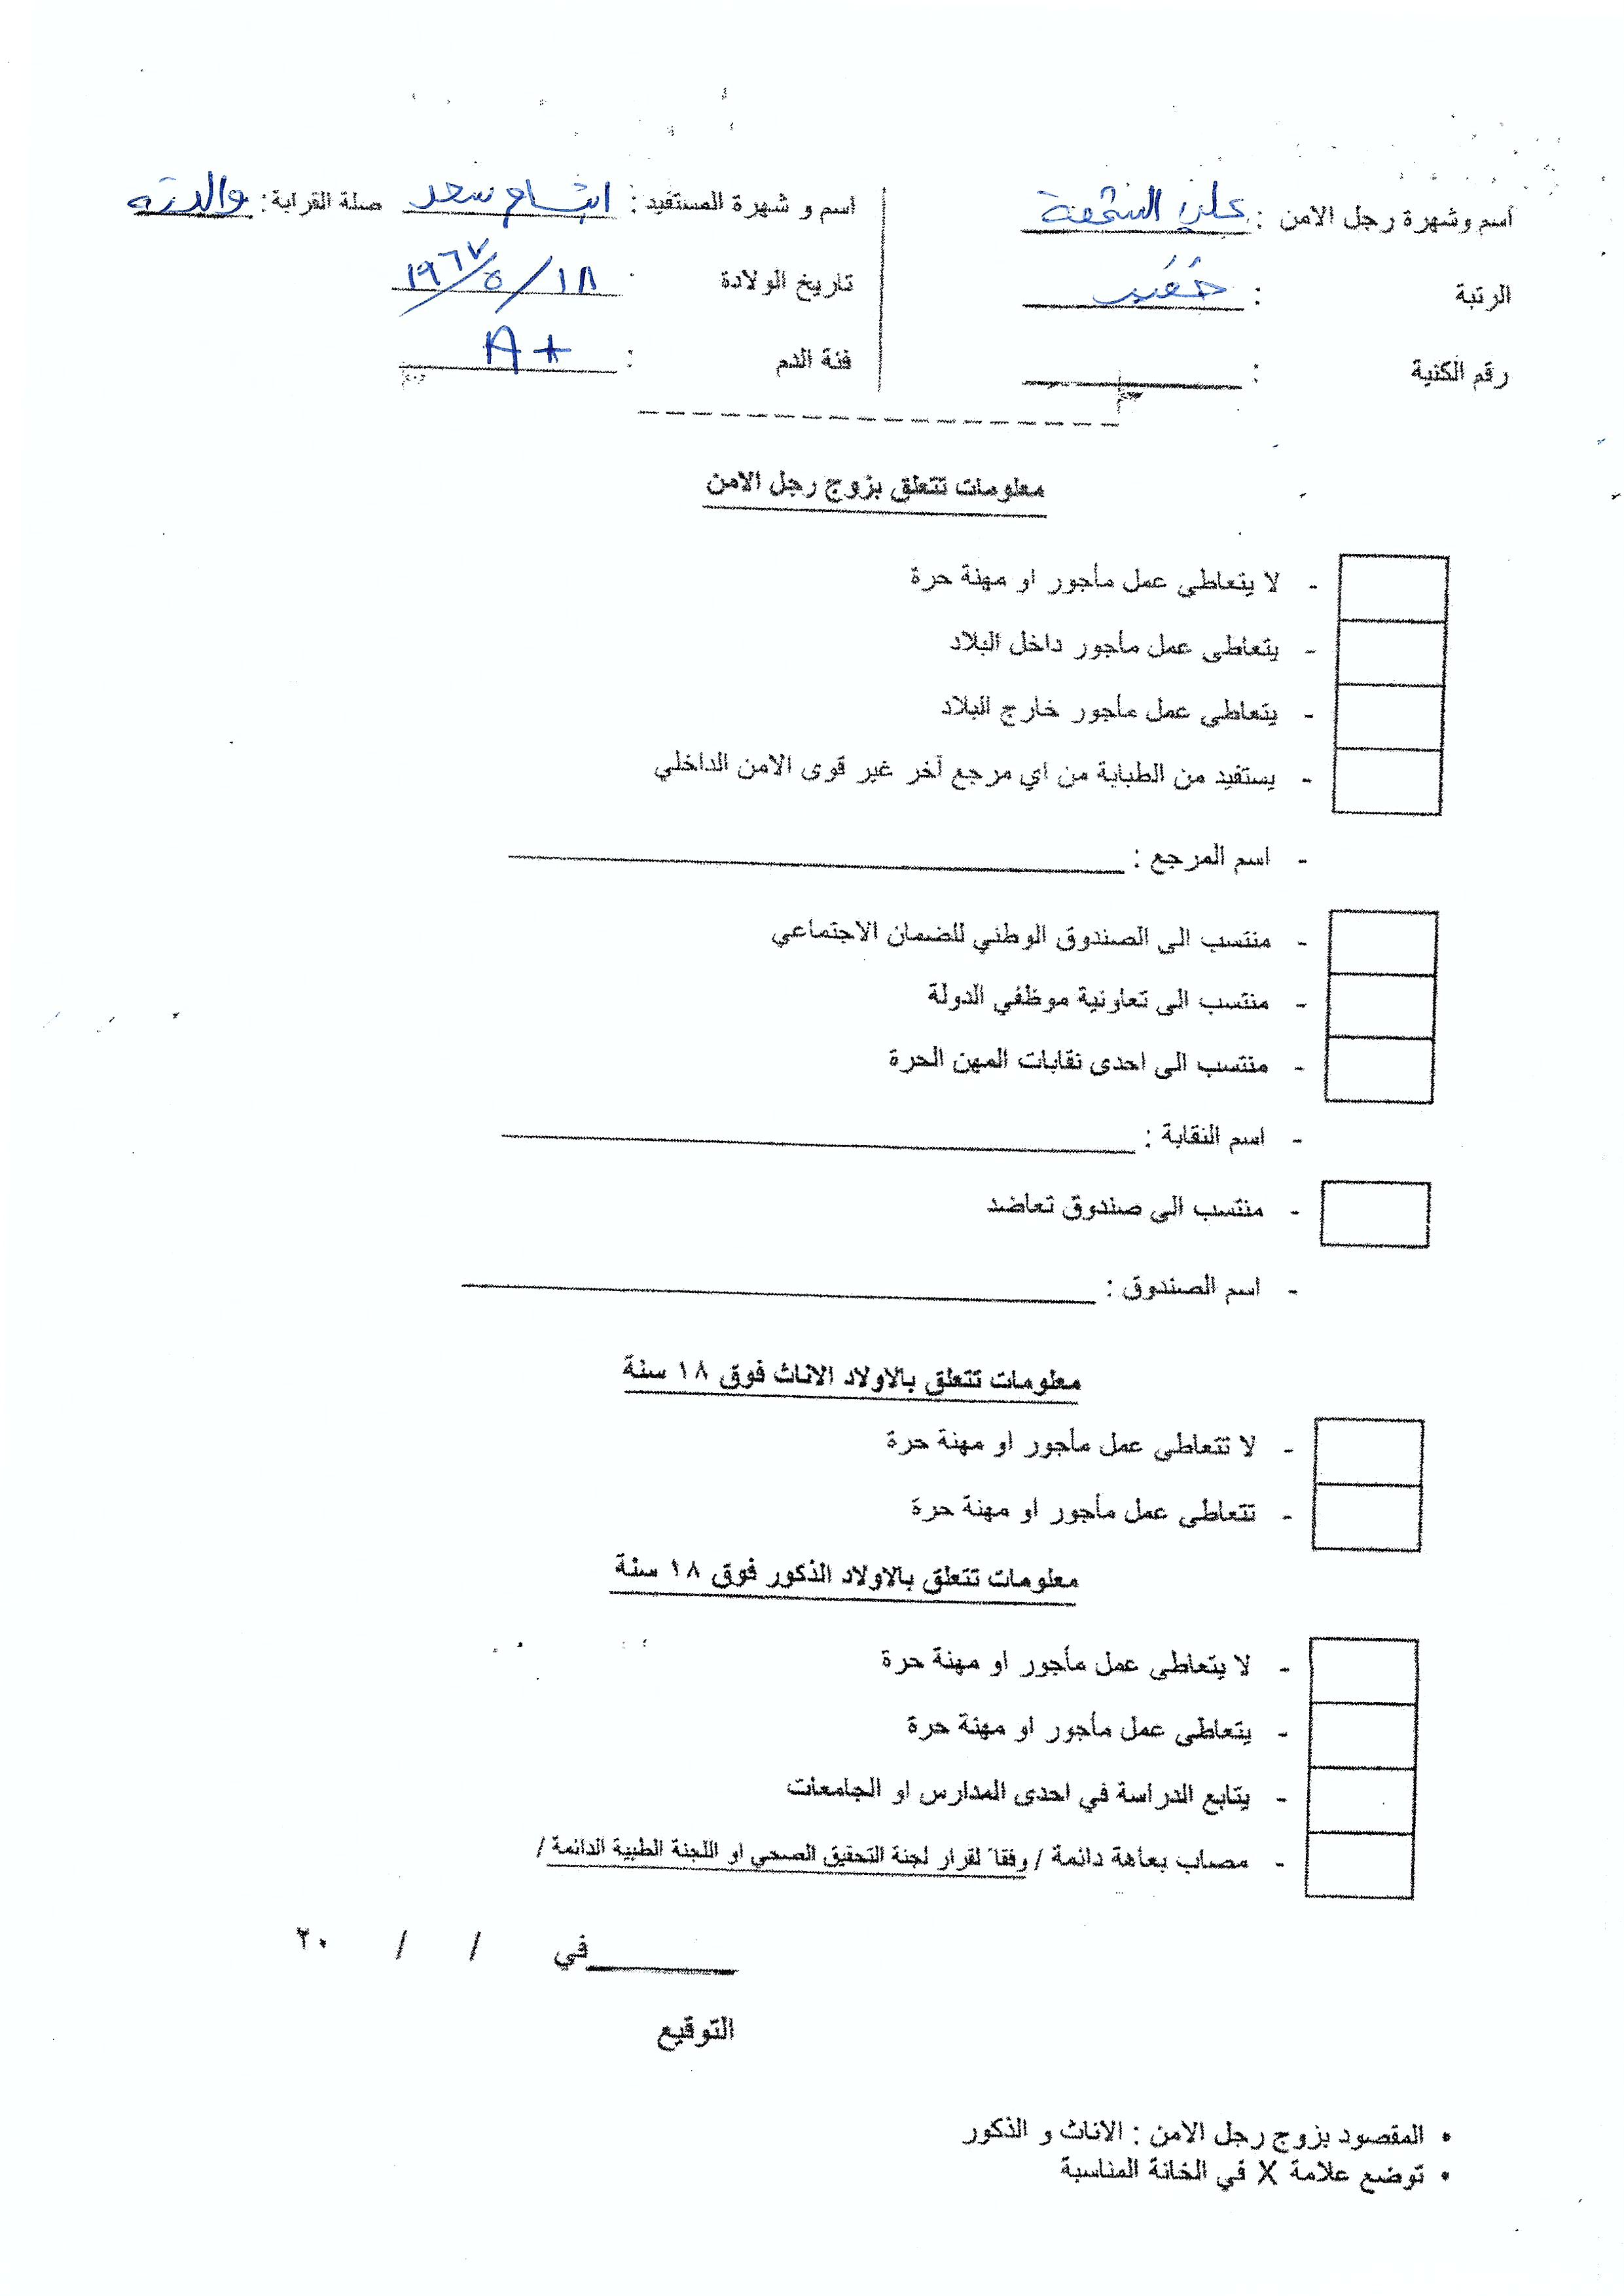 أسم وشهرة رجل الامن : علي الشحنة
الرتبة :
رقم الكنية :
اسم و شهرة المستفيد : ابتسام سعد صلة القرابة: والدته
تاريخ الولادة : ١٨/٥/١٩٦٧
فئة الدم : A+
معلومات تتعلق بزوج رجل الامن
- لا يتعاطى عمل مأجور او مهنة حرة
- يتعاطى عمل مأجور داخل البلاد
- يتعاطى عمل مأجور خارج البلاد
- يستفيد من الطبابة من اي مرجع آخر غير قوى الامن الداخلي
- اسم المرجع :
- منتسب الى الصندوق الوطني للضمان الاجتماعي
- منتسب الى تعاونية موظفي الدولة
- منتسب الى احدى نقابات المهن الحرة
- اسم النقابة :
- منتسب الى صندوق تعاضد
- اسم الصندوق :
معلومات تتعلق بالاولاد الاناث فوق ١٨ سنة
- لا تتعاطى عمل مأجور او مهنة حرة
- تتعاطى عمل مأجور او مهنة حرة
معلومات تتعلق بالاولاد الذكور فوق ١٨ سنة
- لا يتعاطى عمل مأجور او مهنة حرة
- يتعاطى عمل مأجور او مهنة حرة
- يتابع الدراسة في احدى المدارس او الجامعات
- مصاب بعاهة دائمة / وفقا لقرار لجنة التحقيق الصحي او اللجنة الطبية الدائمة /
في / / ٢٠
التوقيع
• المقصود بزوج رجل الامن : الاناث و الذكور
• توضع علامة X في الخانة المناسبة